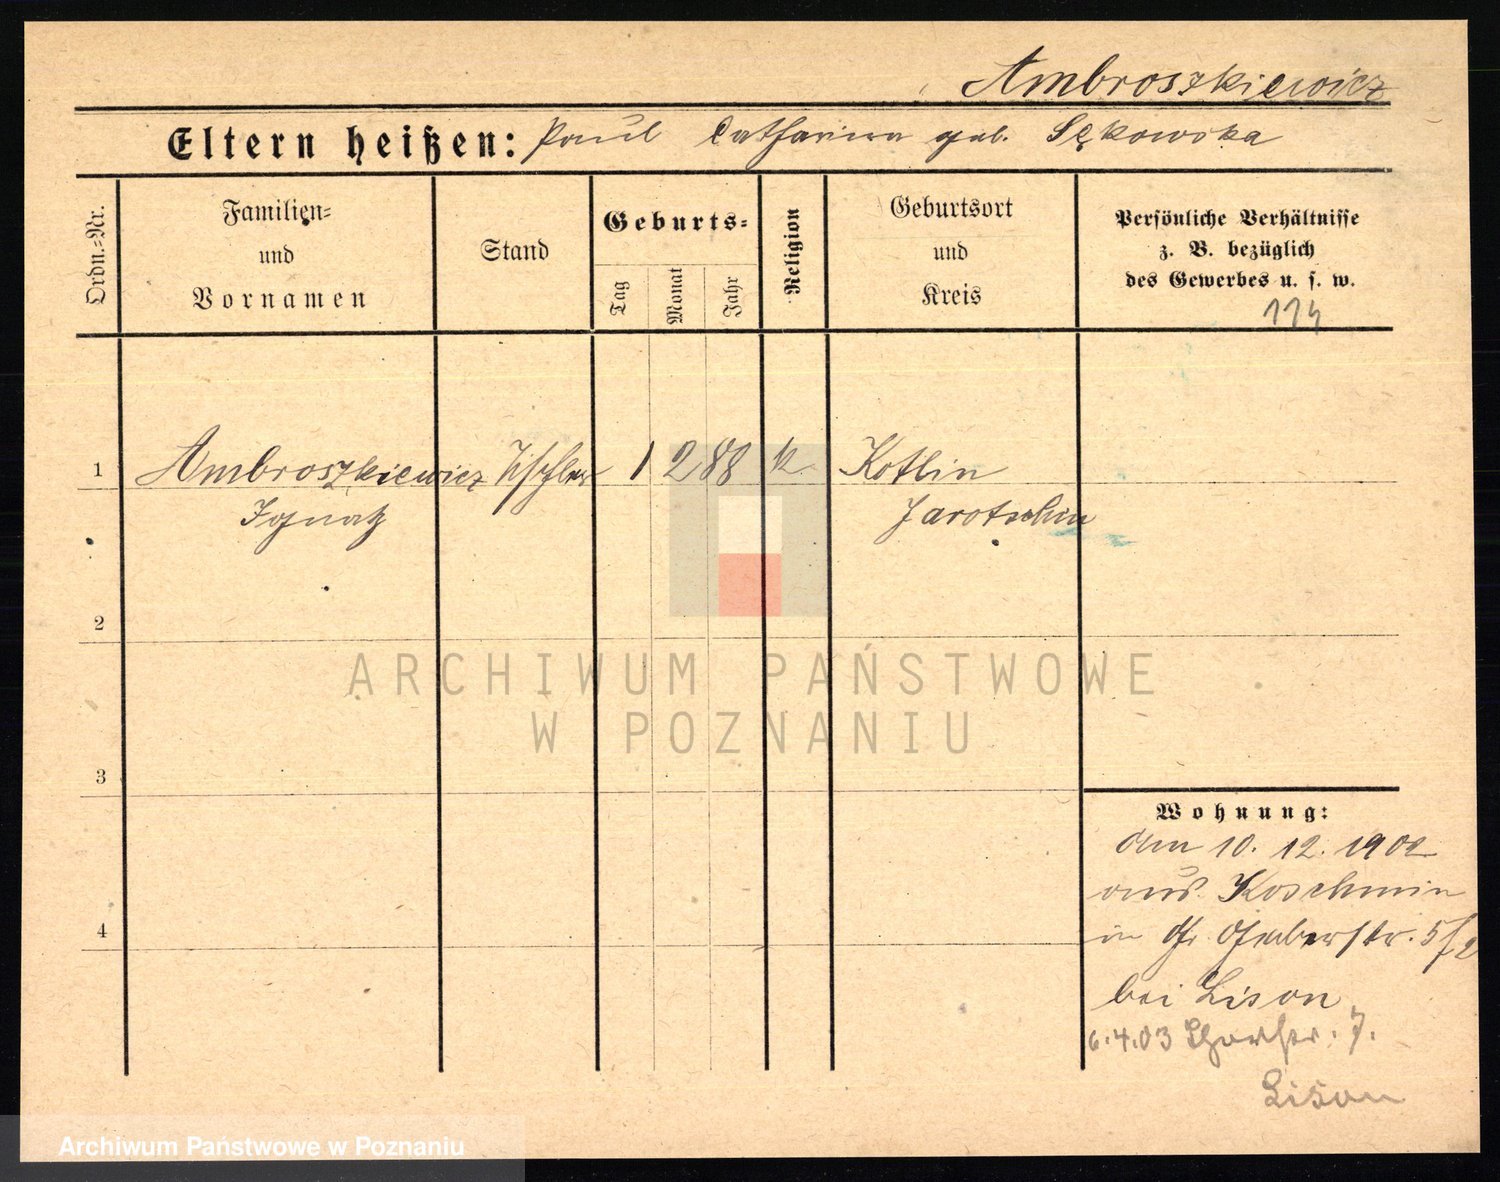 Ambroszkiewicz
Eltern heißen: Paul Catharina geb. Sękowska
Ordn.=Nr.
Familien=
und
Vornamen
Stand
Geburts=
Tag
Monat
Jahr
Religion
Geburtsort
und
Kreis
Persönliche Verhältnisse
z. B. bezüglich
des Gewerbes u. s. w.
114
1 Ambroszkiewicz Tischler 1 2 88 k. Kotlin
Ignatz Jarotschin
2
3
4
Wohnung:
Am 10. 12. 1902
aus Koschmin
in
bei Lison
6.4.03 7.
Lison
ARCHIWUM PAŃSTWOWE
W POZNANIU
Archiwum Państwowe w Poznaniu